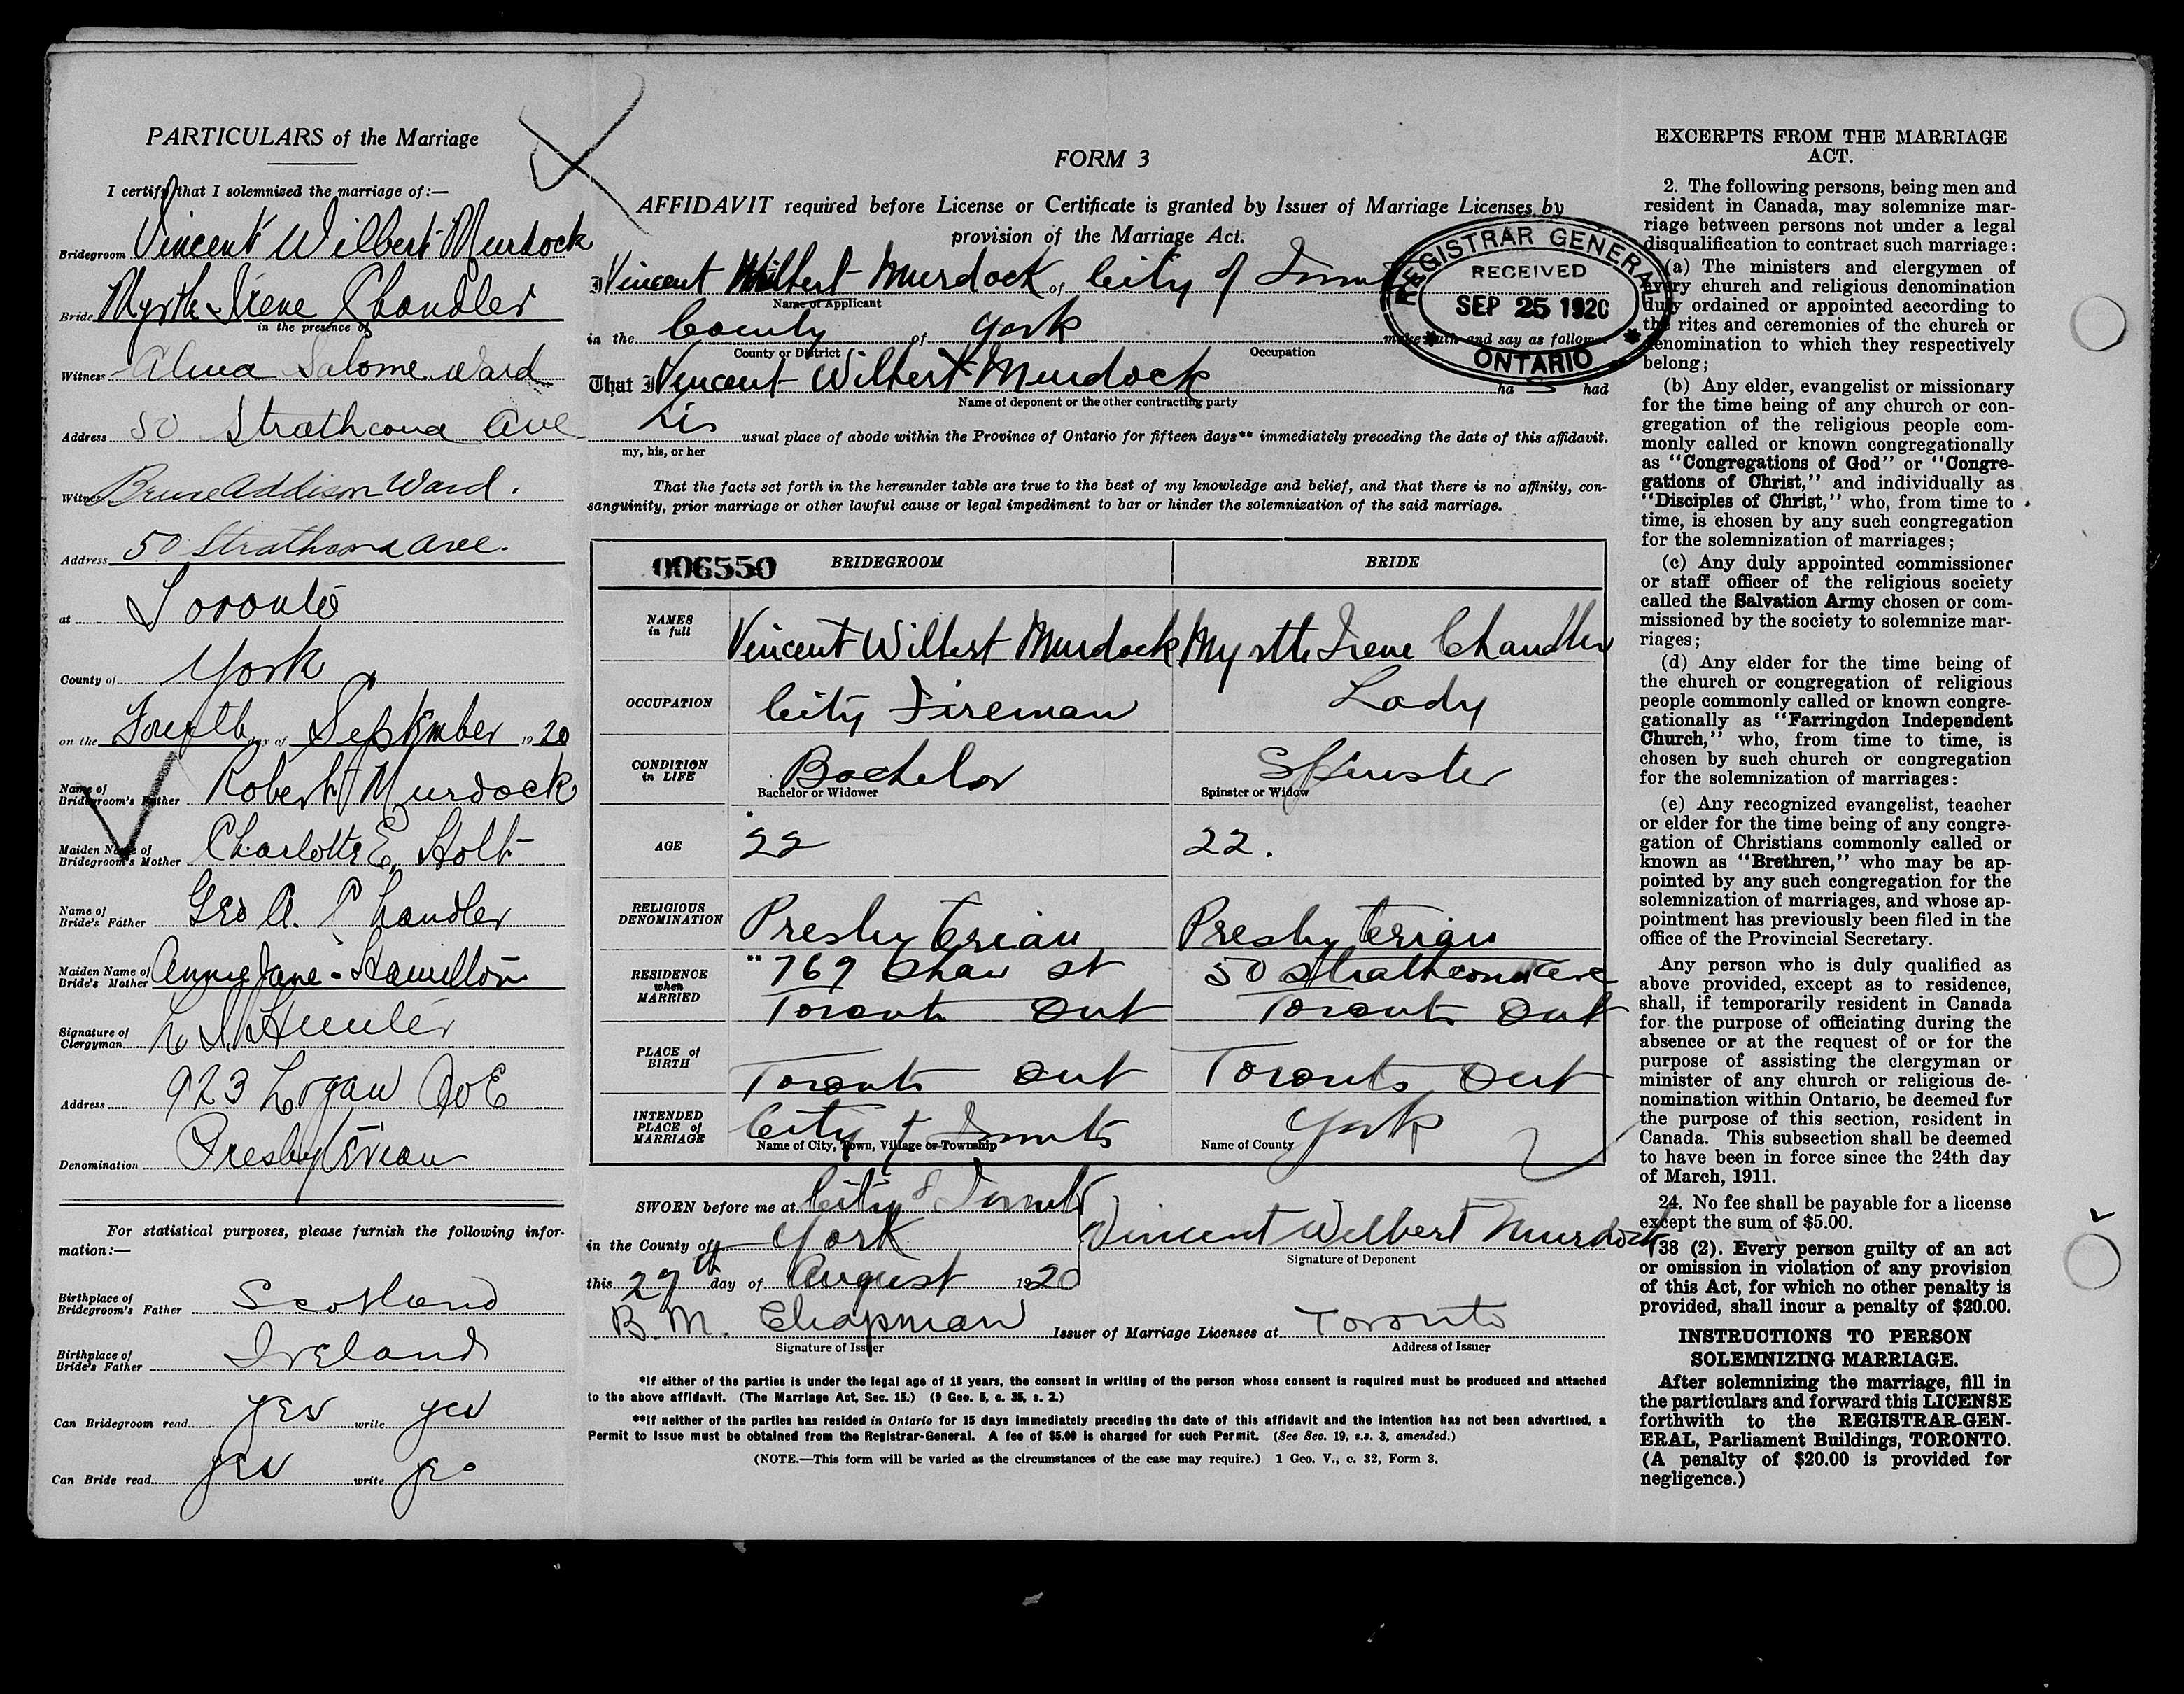 PARTICULARS of the Marriage
I certify that I solemnized the marriage of:—
Bridegroom Vincent Wilbert Murdock
Bride Myrtle Irene Chandler
in the presence of
Witness Alma Salome Ward
Address 50 Strathcona Ave
Witness Bruce Addison Ward.
Address 50 Strathcona Ave.
at Toronto
County of York
on the Fourth day of September 1920
Name of
Bridegroom's Father Robert Murdock
Maiden Name of
Bridegroom's Mother Charlotte E. Holt
Name of
Bride's Father Geo A. Chandler
Maiden Name of
Bride's Mother Annie Jane Hamilton
Signature of
Clergyman Hunter
Address 923 Logan AvE
Denomination Presbyterian
For statistical purposes, please furnish the following infor-
mation:—
Birthplace of
Bridegroom's Father Scotland
Birthplace of
Bride's Father Ireland
Can Bridegroom read yes write yes
Can Bride read yes write yes
FORM 3
AFFIDAVIT required before License or Certificate is granted by Issuer of Marriage Licenses by
provision of the Marriage Act.
I Vincent Wilbert Murdock of City of Toronto
Name of Applicant
in the County of York make oath and say as follows
County or District Occupation
That I Vincent Wilbert Murdock ha s had
Name of deponent or the other contracting party
his usual place of abode within the Province of Ontario for fifteen days** immediately preceding the date of this affidavit.
my, his, or her
That the facts set forth in the hereunder table are true to the best of my knowledge and belief, and that there is no affinity, con-
sanguinity, prior marriage or other lawful cause or legal impediment to bar or hinder the solemnization of the said marriage.
REGISTRAR GENERAL
RECEIVED
SEP 25 1920
ONTARIO
006550 BRIDEGROOM BRIDE
NAMES
in full Vincent Wilbert Murdock Myrtle Irene Chandler
OCCUPATION City Fireman Lady
CONDITION
in LIFE Bachelor Spinster
Bachelor or Widower Spinster or Widow
AGE 22 22.
RELIGIOUS
DENOMINATION Presbyterian Presbyterian
RESIDENCE
when
MARRIED 769 Shaw St 50 Strathcona Ave
Toronto Ont Toronto Ont
PLACE of
BIRTH Toronto Ont Toronto Ont
INTENDED
PLACE of
MARRIAGE City of Toronto York
Name of City, Town, Village or Township Name of County
SWORN before me at City of Toronto
in the County of York Vincent Wilbert Murdock
Signature of Deponent
this 27th day of August 1920
B. M. Chapman Issuer of Marriage Licenses at Toronto
Signature of Issuer Address of Issuer
*If either of the parties is under the legal age of 18 years, the consent in writing of the person whose consent is required must be produced and attached
to the above affidavit. (The Marriage Act, Sec. 15.) (9 Geo. 5, c. 35, s. 2.)
**If neither of the parties has resided in Ontario for 15 days immediately preceding the date of this affidavit and the intention has not been advertised, a
Permit to Issue must be obtained from the Registrar-General. A fee of $5.00 is charged for such Permit. (See Sec. 19, s.s. 3, amended.)
(NOTE.—This form will be varied as the circumstances of the case may require.) 1 Geo. V., c. 32, Form 3.
EXCERPTS FROM THE MARRIAGE
ACT.
2. The following persons, being men and
resident in Canada, may solemnize mar-
riage between persons not under a legal
disqualification to contract such marriage:
(a) The ministers and clergymen of
every church and religious denomination
duly ordained or appointed according to
the rites and ceremonies of the church or
denomination to which they respectively
belong;
(b) Any elder, evangelist or missionary
for the time being of any church or con-
gregation of the religious people com-
monly called or known congregationally
as "Congregations of God" or "Congre-
gations of Christ," and individually as
"Disciples of Christ," who, from time to
time, is chosen by any such congregation
for the solemnization of marriages;
(c) Any duly appointed commissioner
or staff officer of the religious society
called the Salvation Army chosen or com-
missioned by the society to solemnize mar-
riages;
(d) Any elder for the time being of
the church or congregation of religious
people commonly called or known congre-
gationally as "Farringdon Independent
Church," who, from time to time, is
chosen by such church or congregation
for the solemnization of marriages:
(e) Any recognized evangelist, teacher
or elder for the time being of any congre-
gation of Christians commonly called or
known as "Brethren," who may be ap-
pointed by any such congregation for the
solemnization of marriages, and whose ap-
pointment has previously been filed in the
office of the Provincial Secretary.
Any person who is duly qualified as
above provided, except as to residence,
shall, if temporarily resident in Canada
for the purpose of officiating during the
absence or at the request of or for the
purpose of assisting the clergyman or
minister of any church or religious de-
nomination within Ontario, be deemed for
the purpose of this section, resident in
Canada. This subsection shall be deemed
to have been in force since the 24th day
of March, 1911.
24. No fee shall be payable for a license
except the sum of $5.00.
38 (2). Every person guilty of an act
or omission in violation of any provision
of this Act, for which no other penalty is
provided, shall incur a penalty of $20.00.
INSTRUCTIONS TO PERSON
SOLEMNIZING MARRIAGE.
After solemnizing the marriage, fill in
the particulars and forward this LICENSE
forthwith to the REGISTRAR-GEN-
ERAL, Parliament Buildings, TORONTO.
(A penalty of $20.00 is provided for
negligence.)